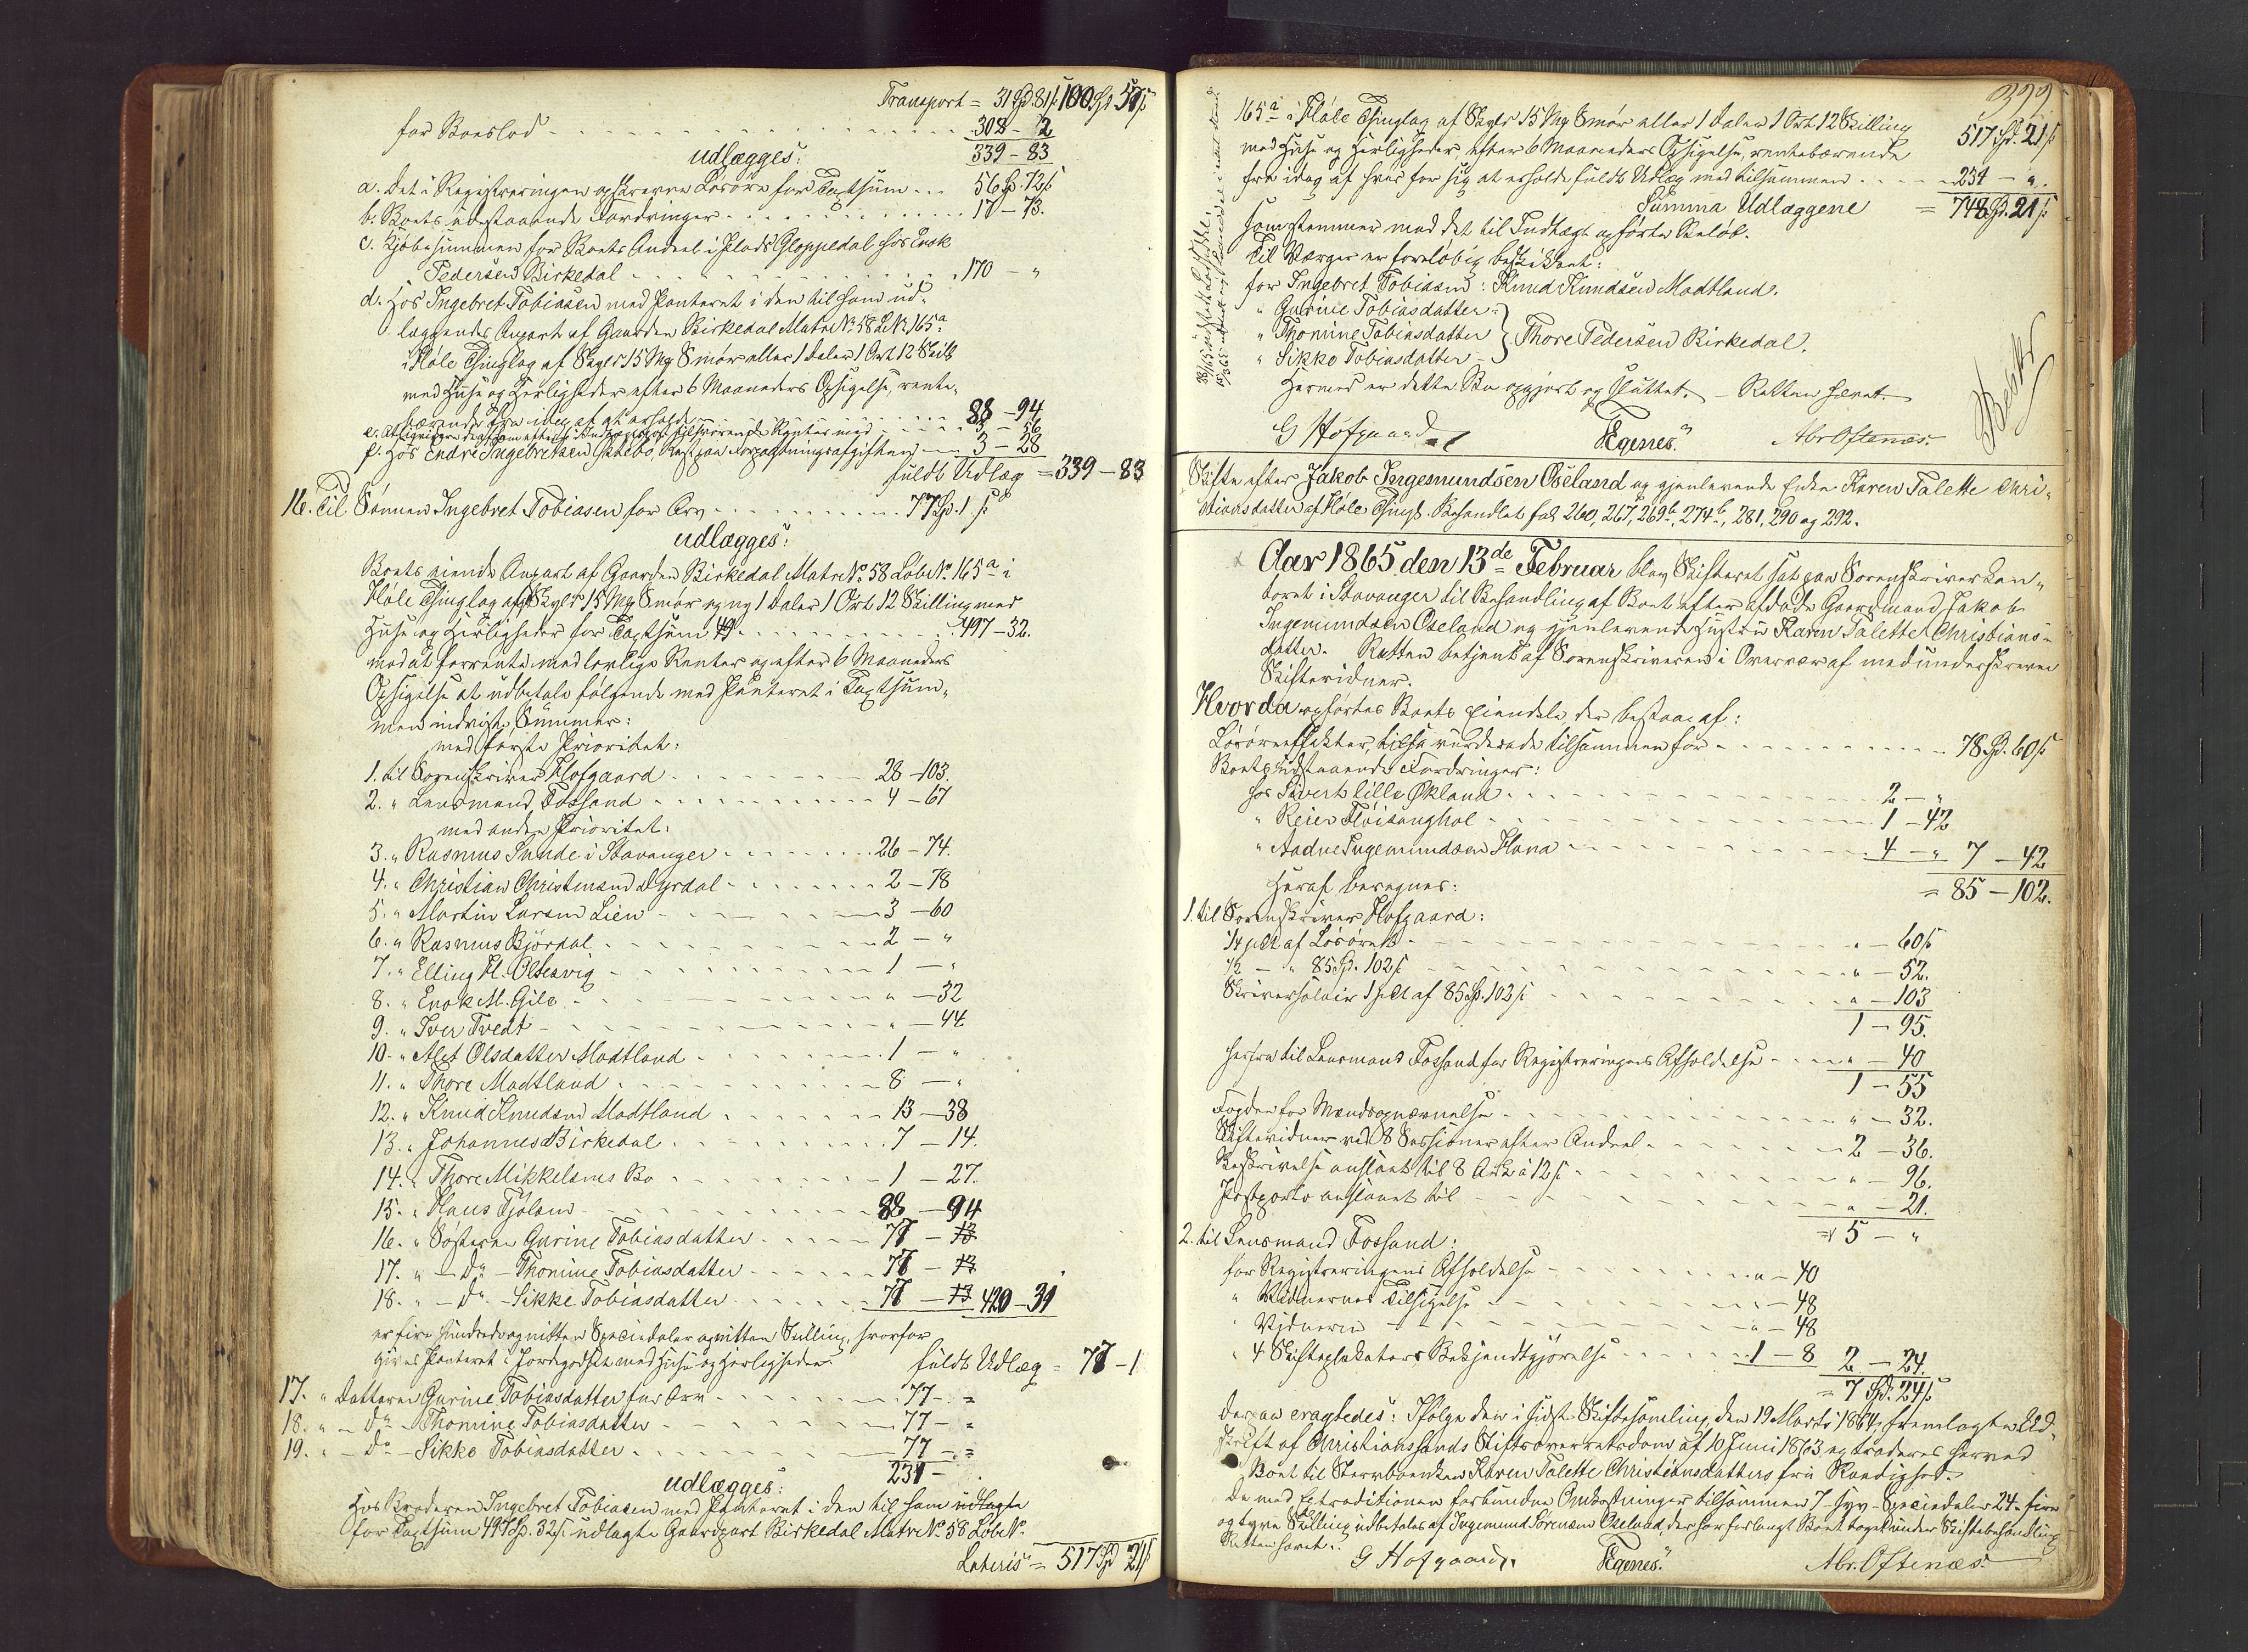 Transport = 31 Spd. 81 s. 100 Spd 57 s.
for Boeslod 308 - 2
339 - 83
udlægges:
a. Det i Registreringen opskrevne Løsøre for Taxtsum 56 Spd. 72 s.
b. Boets udestaaende Fordringer 17 - 73.
c. Kjøbesummen for Boets Andeel i Plads Gloppedal hos Enok
Pedersen Birkedal 170 - "
d. Hos Ingebret Tobiasen med Panteret i den til ham ud-
læggende Anpart af Gaarden Birkedal Matr No. 58 L No. 165a
i Høle Thinglag af Skyld 15 Mg Smør eller 1 Daler 1 Ort 12 Skill
med Huse og Herligheder efter 6 Maaneders Opsigelse, rente-
bærende fra idag af at erholde 88 - 94
Renter med 3 - 56
f. Hos Endre Ingebretsen Rest paa Forpagtningsafgiften 3 - 28
fuldt Udlæg = 339 - 83
16. Til Sønnen Ingebret Tobiasen for Arv 77 Spd. 1 s.
udlægges:
Boets eiende Anpart af Gaarden Birkedal Matr No. 58 Løbe No. 165a i
Høle Thinglag af Skyld 15 Mg Smør og ny 1 Daler 1 Ort 12 Skilling med
Huse og Herligheder for Taxtsum 497 - 32.
mod at forrente med lovlige Renter og efter 6 Maaneders
Opsigelse at udbetale følgende med Panteret i Taxtsum-
men indviste Summer:
med første Prioritet:
1. til Sorenskriver Hofgaard 28 - 103.
2. " Lensmand Fossand 4 - 67
med anden Prioritet:
3. " Rasmus Sunde i Stavanger 26 - 74.
4. " Christian Christensen Dyrdal 2 - 78
5. " Martin Larsen Lien 3 - 60
6. " Rasmus Bjørdal 2 - "
7. " Elling H. Oltesvig 1 - "
8. " Enok M. Gilo " - 32
9. " Iver Tvedt " - 44.
10. " Alet Olsdatter Madtland 1 - "
11. " Thore Madtland 8 - "
12. " Knud Knudsen Madtland 13 - 38
13. " Johannes Birkedal 7 - 14.
14. " Thore Mikkelsens Bo 1 - 27.
15. " Hans Tjølsen 88 - 94
16. " Søsteren Gurine Tobiasdatter 77 - 13
17. " - Do - Thomine Tobiasdatter 77 - 13
18. " - Do - Sikke Tobiasdatter 77 - 13 420 - 31
er fire hundrede og nitten Speciedaler og nitten Skilling, hvorfor
gives Panteret i Jordegodset med Huse og Herligheder. fuldt Udlæg = 77 - 1
17. " Datteren Gurine Tobiasdatter for Arv 77 - "
18. " - Do - Thomine Tobiasdatter 77 - "
19. " - Do - Sikke Tobiasdatter 77 - "
231 -
udlægges:
Hos Broderen Ingebret Tobiasen med Panteret i den til ham udlagte
for Taxtsum 497 Spd. 32 s. udlagte Gaardpart Birkedal Matr No. 58 Løbe No.
Lateris = 517 Spd 21 s.
399
165a i Høle Thinglag af Skyld 15 Mg Smør eller 1 Daler 1 Ort 12 Skilling 517 Spd. 21 s.
med Huse og Herligheder, efter 6 Maaneders Opsigelse, rentebærende
fra idag af hver for sig at erholde fuldt Udlæg med tilsammen 231 - ".
Summa Udlæggene = 748 Spd. 21 s.
som stemmer med det til Indtægt opførte Beløb.
Til Værger er foreløbig beskikket:
for Ingebret Tobiasen: Knud Knudsen Madtland.
" Gurine Tobiasdatter
" Thomine Tobiasdatter } Thore Pedersen Birkedal.
" Sikke Tobiasdatter
Hermed er dette Bo opgjort og sluttet. - Retten hævet.
G Hofgaard Egenes. Abr Oftenæs.
Skifte efter Jakob Ingemundsen Oseland og gjenlevende Enke Karen Talette Chri-
stiansdatter af Høle Thingl. Behandlet fol 260, 267, 269b, 274b, 281, 290 og 292.
Aar 1865 den 13de Februar blev Skifteret sat paa Sorenskriverkon-
toret i Stavanger til Behandling af Boet efter afdøde Gaardmand Jakob
Ingemundsen Oseland og gjenlevende Hustru Karen Talette Christians-
datter. Retten betjent af Sorenskriveren i Overvær af medunderskrevne
Skiftevidner.
Hvorda opførtes Boets Eiendele, der bestaae af:
Løsøreeffekter, tilsa vurderede tilsammen for 78 Spd. 60 s.
Boets udestaaende Fordringer:
hos Sivert lille Økland 2 - "
" Reier Høisanghol 1 - 42
" Aadne Ingemundsen Hana 4 - " 7 - 42
= 85 - 102.
Heraf beregnes:
1. til Sorenskriver Hofgaard:
1/4 pCt af Løsøret " - 60 s
1/2 - " 85 Spd. 102 s. " - 52.
Skriversalair 1 pCt af 85 Spd. 102 s. " - 103
1 - 95.
herfra til Lensmand Fossand for Registreringens Afholdelse " - 40
1 - 55
Fogden for Mændsopnævnelse " - 32.
Skiftevidner ved 8 Sessioner efter Andeel 2 - 36.
Beskrivelse anslaaet til 8 Ark à 12 s. " - 96.
Postporto anslaaet til " - 21.
= 5 - "
2. til Lensmand Fossand:
for Registreringens Afholdelse " - 40
" Vidnernes Tilsigelse " - 48
" Vidnerne " - 48
" 4 Skifteplakaters Bekjendtgjørelse 1 - 8 2 - 24.
= 7 Spd. 24 s.
Derpaa eragtedes: Ifølge den i sidste Skiftesamling den 19 Marts 1864 fremlagte Ud-
skrift af Christianssands Stiftsoverretsdom af 10 Juni 1863 extraderes herved
Boet til Stervboenken Karen Talette Christiansdatters frie Raadighed.
De med Extraditionen forbundne Omkostninger tilsammen 7 - syv - Speciedaler 24 - fire
og tyve Skilling udbetales af Ingemund Sørensen Oseland, der har forlangt Boet taget under Skiftebehandling
Retten hævet.
G Hofgaard. Egenes. Abr. Oftenæs.